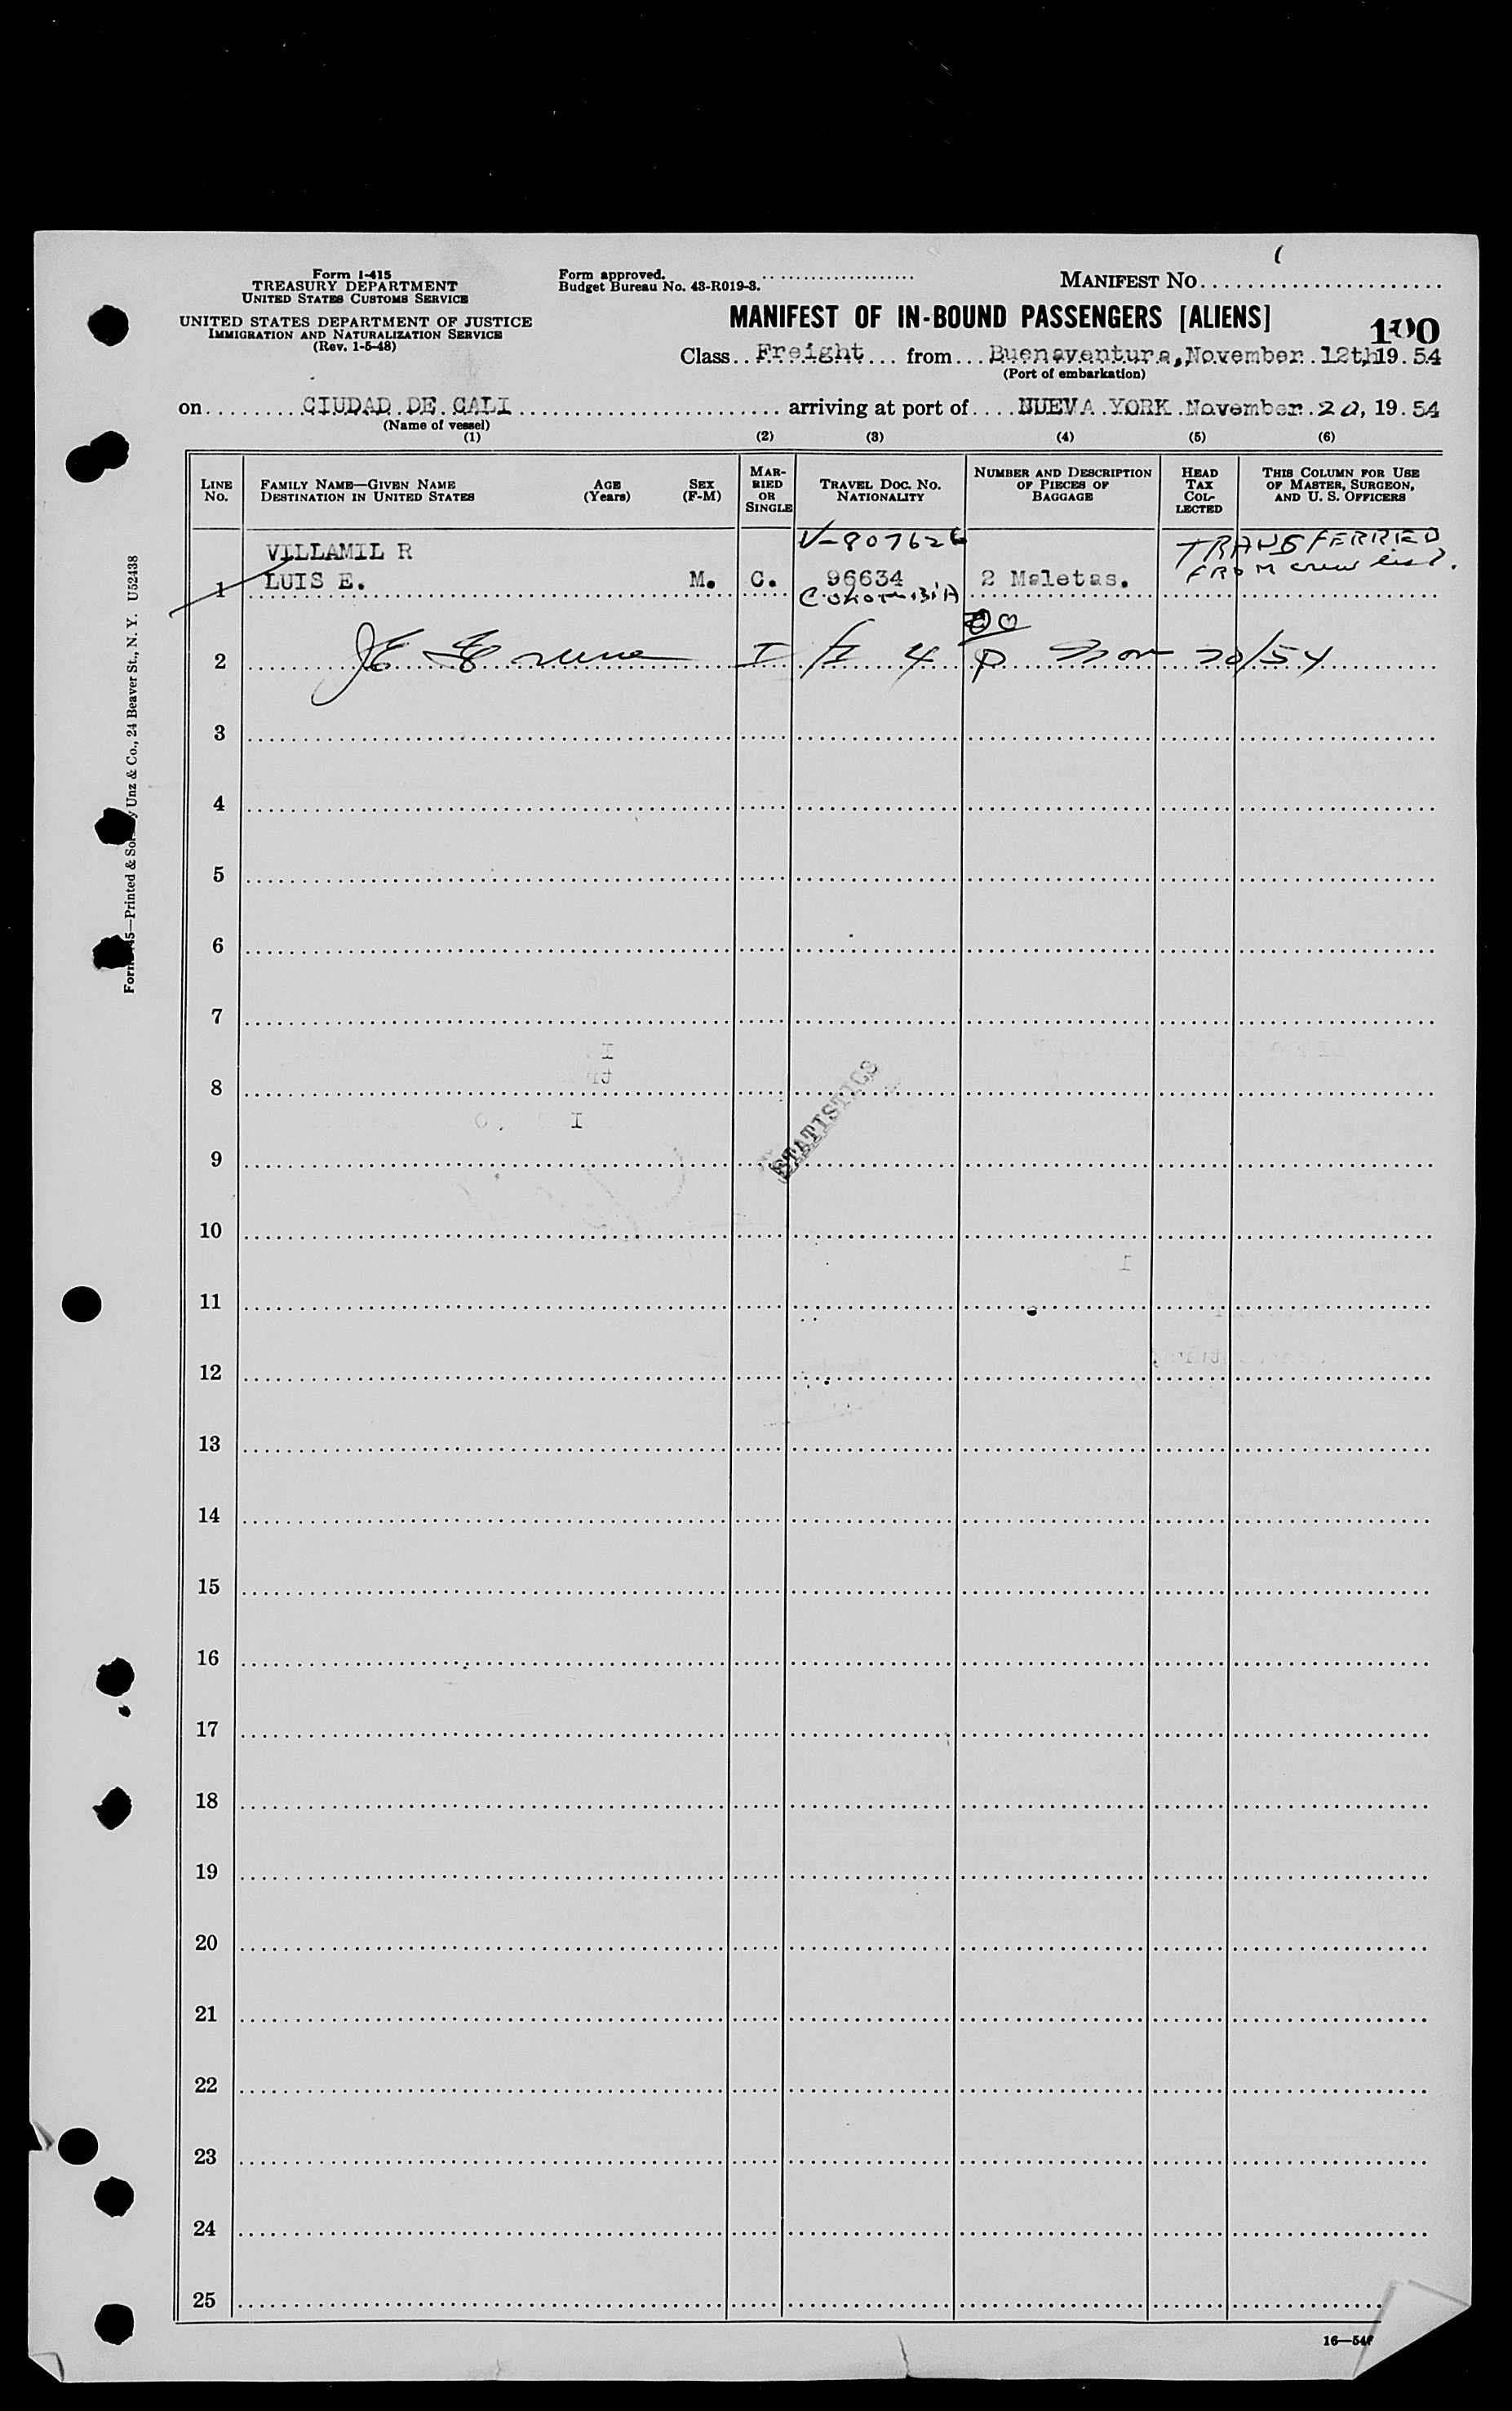 Form I-415
TREASURY DEPARTMENT
UNITED STATES CUSTOMS SERVICE
UNITED STATES DEPARTMENT OF JUSTICE
IMMIGRATION AND NATURALIZATION SERVICE
(Rev. 1-5-48)
Form approved.
Budget Bureau No. 43-R019-3.
MANIFEST NO.
MANIFEST OF IN-BOUND PASSENGERS [ALIENS]
100
Class Freight from Buenaventura, November 12th 19 54
(Port of embarkation)
on CIUDAD DE CALI arriving at port of NUEVA YORK November 20, 19 54
(Name of vessel)
(1) (2) (3) (4) (5) (6)
LINE NO.
FAMILY NAME—GIVEN NAME
DESTINATION IN UNITED STATES
AGE (Years)
SEX (F-M)
MARRIED OR SINGLE
TRAVEL DOC. NO. NATIONALITY
NUMBER AND DESCRIPTION OF PIECES OF BAGGAGE
HEAD TAX COLLECTED
THIS COLUMN FOR USE OF MASTER, SURGEON, AND U. S. OFFICERS
VILLAMIL R V-807626 TRANSFERRED
1 LUIS E. M. C. 96634 2 Maletas. FROM crew list.
COLOMBIA
2 Nov 20/54
3
4
5
6
7
8
STATISTICS
9
10
11
12
13
14
15
16
17
18
19
20
21
22
23
24
25
Printed & Sold by Unz & Co., 24 Beaver St., N. Y. U52438